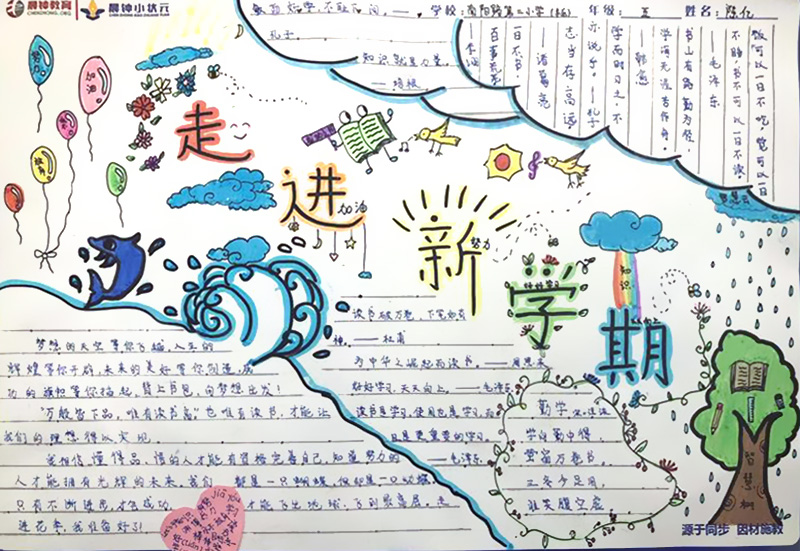 晨钟教育
CHENZHONG.ORG
晨钟小状元
学校：南阳路第二小学
年级：五
姓名：陈亿
敏而好学，不耻下问。——
孔子
知识就是力量。
——培根
百事荒芜
一日不书，
——诸葛亮
志当存高远。
亦说乎。——孔子
学而时习之，不
——韩愈
学海无涯苦作舟。
书山有路勤为径，
——毛泽东
不睡，书不可以一日不读
饭可以一日不吃，觉可以一日
努力
加油
教育
走
进
加油
新
努力
学
好好学习
期
知识
智慧云
读书破万卷，下笔如有
神。——杜甫
为中华之崛起而读书。——周恩来
好好学习，天天向上。——毛泽东
读书是学习，使用也是学习，而
且是更重要的学习。
——毛泽东
梦想的天空等你飞翔，人生的
辉煌等你开辟，未来的美好等你创造，成
功的旗帜等你扬起，背上书包，向梦想出发！
“万般皆下品，唯有读书高”也唯有读书，才能让
我们的理想得以实现。
我相信懂得品、悟的人才能有资格完善自己，知道努力的
人才能拥有光辉的未来。我们
只有不断进步，才会成功
进花季，我准备好了！
勤学
学向勤中得，
萤窗万卷书。
三冬今足用，
谁笑腹空虚
智慧树
源于同步 因材施教